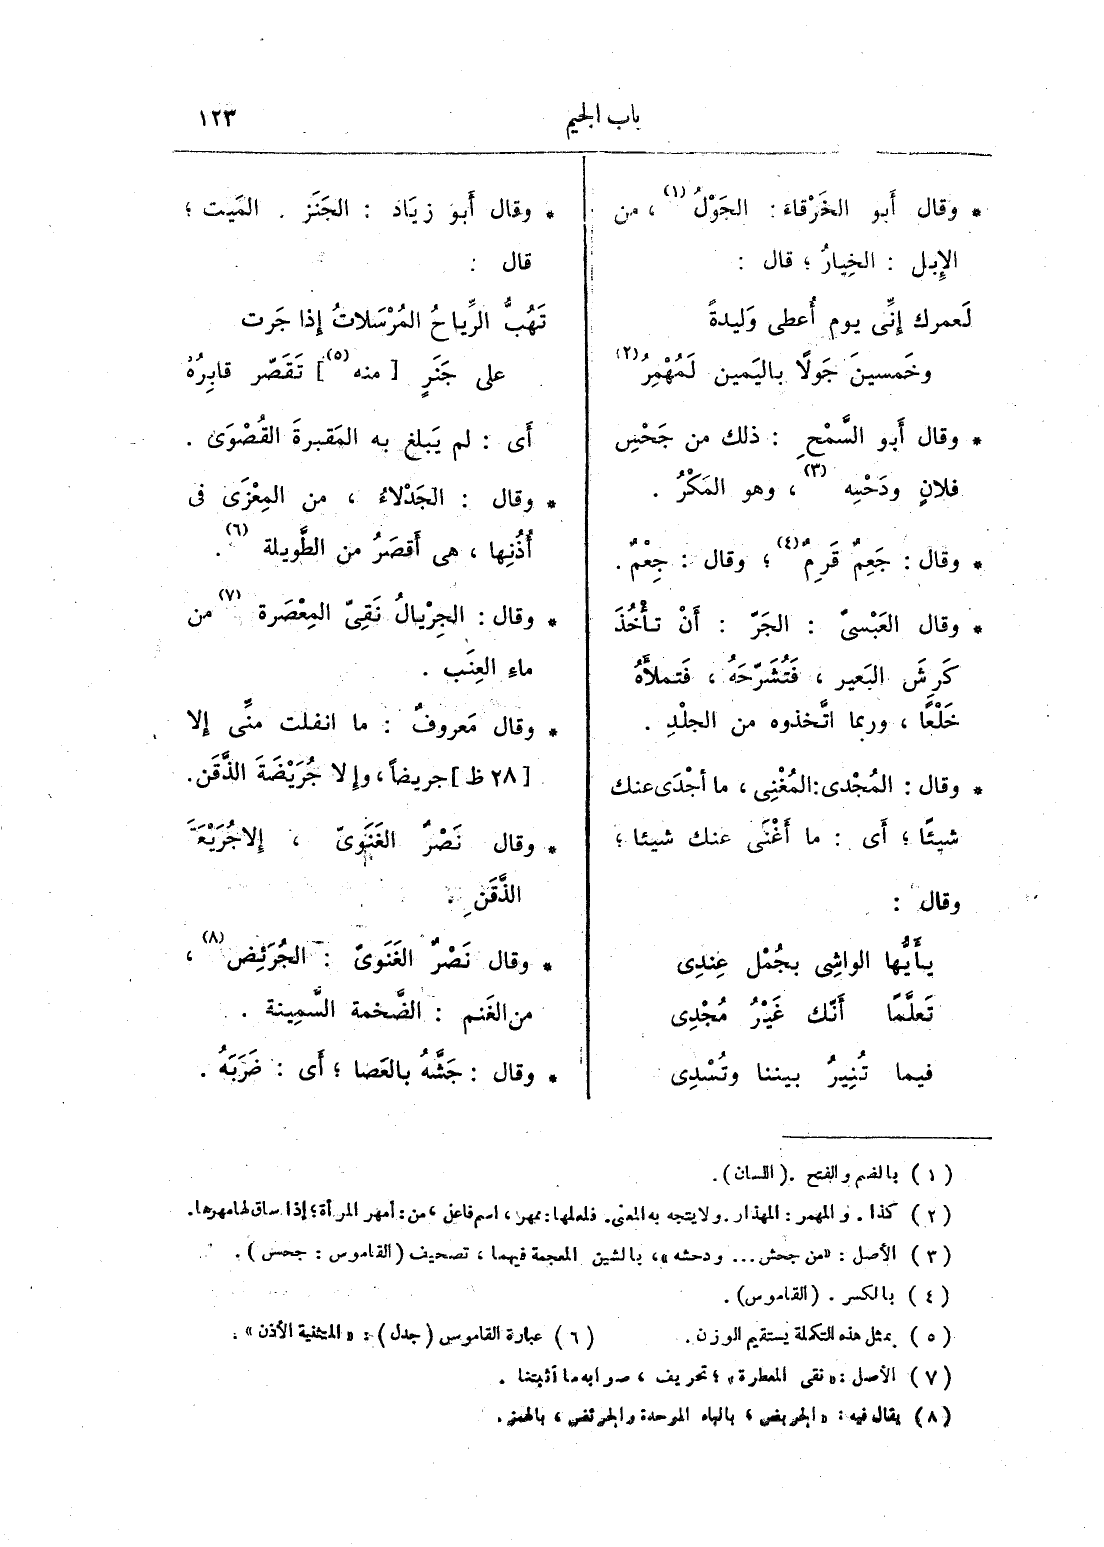 باب الجيم
١٢٣
* وقال أَبو الخَرْقاءَ : الجَوْلُ (١) ، من
الإِبل : الخِيارُ ؛ قال :
لَعمرك إِنِّى يوم أُعطى وَليدةً
وخَمسينَ جَولًا باليَمين لَمُهْمِرُ (٢)
* وقال أَبو السَّمْح : ذلك من جَحْسِ
فلانٍ ودَحْسِه (٣) ، وهو المَكْرُ .
* وقال : جَعِمٌ قَرِمٌ (٤) ؛ وقال : جِعْمٌ .
* وقال العَبْسىّ : الجَرّ : أَنْ تأْخُذَ
كَرِشَ البَعير ، فَتُشَرّحَهُ ، فَتملأَهُ
خَلْعًا ، وربما اتَّخذوه من الجلْدِ .
* وقال : المُجْدى : المُغْنِى ، ما أجْدَى عنك
شيئًا ؛ أَى : ما أَغْنَى عنك شيئا ؛
وقال :
يأَيُّها الواشِى بجُمْل عِندِى
تَعلَّمًا أَنّك غَيْرُ مُجْدِى
فيما تُنِيرُ بيننا وتُسْدِى
* وقال أَبو زيَاد : الجَنَز . المَيت ؛
قال :
تَهُبُّ الرِّياحُ المُرْسَلاتُ إِذا جَرت
على جَنَزٍ [ منه (٥) ] تَقَصّر قابِرُهْ
أَى : لم يَبلغ به المَقبرةَ القُصْوَى .
* وقال : الجَدْلاءُ ، من المِعْزَى فى
أُذُنِها ، هى أَقصَرُ من الطَّويلة (٦) .
* وقال : الجِرْيالُ نَقِىّ المِعْصَرة (٧) من
ماءِ العِنَب .
* وقال مَعروفٌ : ما انفلت منِّى إِلا
[ ٢٨ ظ ] جريضاً ، وإِلا جُرَيْضَةَ الذَّقَن .
* وقال نَصْرٌ الغَنَوىّ ، إِلا جُرَيْعَةَ
الذَّقَن .
* وقال نَصْرٌ الغَنَوىّ : الجُرَئِض (٨) ،
من الغَنم : الضَّخمة السَّمِينة .
* وقال : جَشَّهُ بالعَصا ؛ أَى : ضَرَبَهُ .
( ١ ) بالضم والفتح . (اللسان) .
( ٢ ) كذا . والمهمر : المهذار . ولا يتجه به المعنى . فلعلها : ممهر ، اسم فاعل ، من : أمهر المرأة ؛ إذا ساق لها مهرها .
( ٣ ) الأصل : «من جحش ... ودحشه » ، بالشين المعجمة فيهما ، تصحيف (القاموس : جحس ) .
( ٤ ) بالكسر . (القاموس) .
( ٥ ) بمثل هذه التكملة يستقيم الوزن . ( ٦ ) عبارة القاموس ( جدل ) : « المتثنية الأذن » .
( ٧ ) الأصل : « نقى المعطرة » ؛ تحريف ، صوابه ما أثبتنا .
( ٨ ) يقال فيه : « الجربض ، بالباء الموحدة والجرئض ، بالهمز .